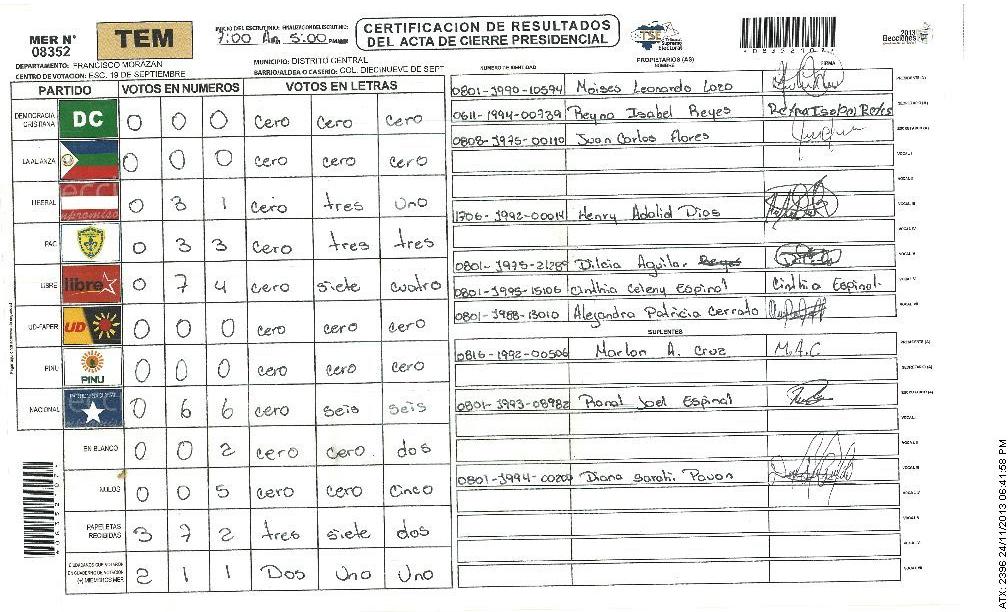 MER N° 08352
TEM
INICIO DEL ESCRUTINIO: FINALIZACION DEL ESCRUTINIO:
7:00 Am 5:00 PM
CERTIFICACION DE RESULTADOS
DEL ACTA DE CIERRE PRESIDENCIAL
TSE Tribunal Supremo Electoral
2013 Elecciones
DEPARTAMENTO: FRANCISCO MORAZAN
MUNICIPIO: DISTRITO CENTRAL
CENTRO DE VOTACION: ESC. 19 DE SEPTIEMBRE
BARRIO/ALDEA O CASERIO: COL. DIECINUEVE DE SEPT
PARTIDO VOTOS EN NUMEROS VOTOS EN LETRAS
DEMOCRACIA CRISTIANA DC 0 0 0 cero cero cero
LA ALIANZA 0 0 0 cero cero cero
LIBERAL 0 3 1 cero tres uno
PAC 0 3 3 cero tres tres
LIBRE libre 0 7 4 cero siete cuatro
UD-FAPER UD 0 0 0 cero cero cero
PINU PINU 0 0 0 cero cero cero
NACIONAL 0 6 6 cero seis seis
EN BLANCO 0 0 2 cero cero dos
NULOS 0 0 5 cero cero cinco
PAPELETAS RECIBIDAS 3 7 2 tres siete dos
CIUDADANOS QUE VOTARON EN CUADERNO DE VOTACION (+) MIEMBROS MER 2 1 1 Dos uno uno
NUMERO DE IDENTIDAD PROPIETARIOS (AS) NOMBRE FIRMA
0801-1990-10594 Moises Leonardo Lozo PRESIDENTE (A)
0611-1994-00739 Reyna Isabel Reyes Reyna Isabel Reyes SECRETARIO (A)
0808-1975-00110 Juan Carlos Flores ESCRUTADOR (A)
VOCAL I
VOCAL II
1706-1992-00014 Henry Adalid Dias VOCAL III
VOCAL IV
0801-1975-21289 Dilcia Aguilar VOCAL V
0801-1995-15106 Cinthia Celeny Espinal Cinthia Espinal. VOCAL VI
0801-1988-13010 Alejandra Patricia Cerrato VOCAL VII
SUPLENTES
0816-1992-00506 Marlon A. Cruz M.A.C PRESIDENTE (A)
SECRETARIO (A)
0801-1993-08982 Ronal Joel Espinal ESCRUTADOR (A)
VOCAL I
VOCAL II
0801-1994-00204 Diana Sarahi Pavon VOCAL III
VOCAL IV
VOCAL V
VOCAL VI
VOCAL VII
ATX: 2396 24/11/2013 06:41:58 PM